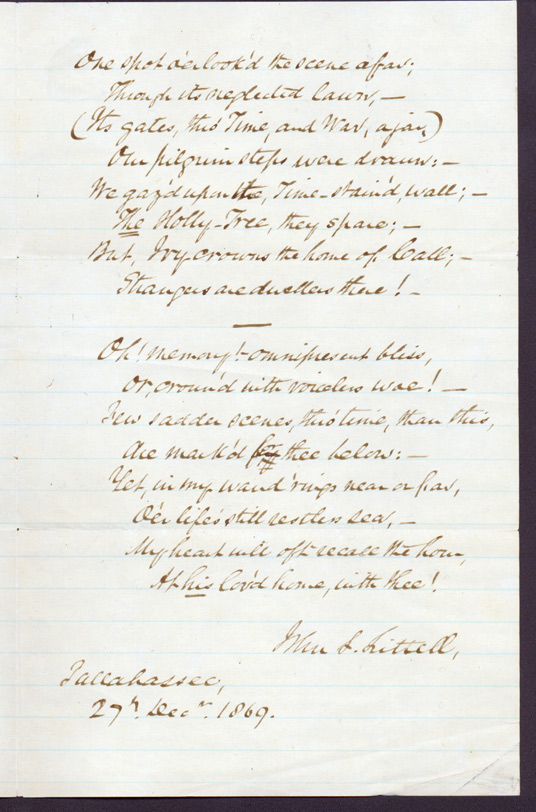 One spot o'erlook'd the scene afar;
Through its neglected lawn, —
(Its gates, thro' Time, and War, ajar,)
Our pilgrim steps were drawn: —
We gaz'd upon the, Time-stain'd, wall; —
The Holly-Tree, they spare; —
But, Ivy crowns the home of Call; —
Strangers are dwellers there! —
Oh! memory! — omnipresent bliss,
Or, crown'd with voiceless woe! —
Few sadder scenes, thro' time, than this,
Are mark'd by thee below: —
Yet, in my wand'rings near or far,
O'er life's still restless sea, —
My heart will oft recall the hour,
At his lov'd home, with thee!
Littell,
Tallahassee,
27th. Decr. 1869.